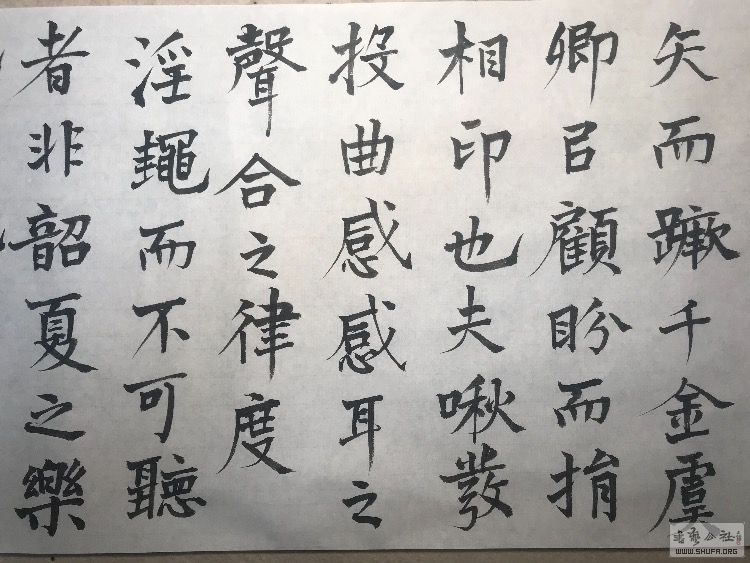 矢而蹶千金虞
卿㠯顧盼而捐
相印也夫啾發
投曲感感耳之
聲合之律度
淫䵷而不可聽
者非韶夏之樂
書藝公社
WWW.SHUFA.ORG